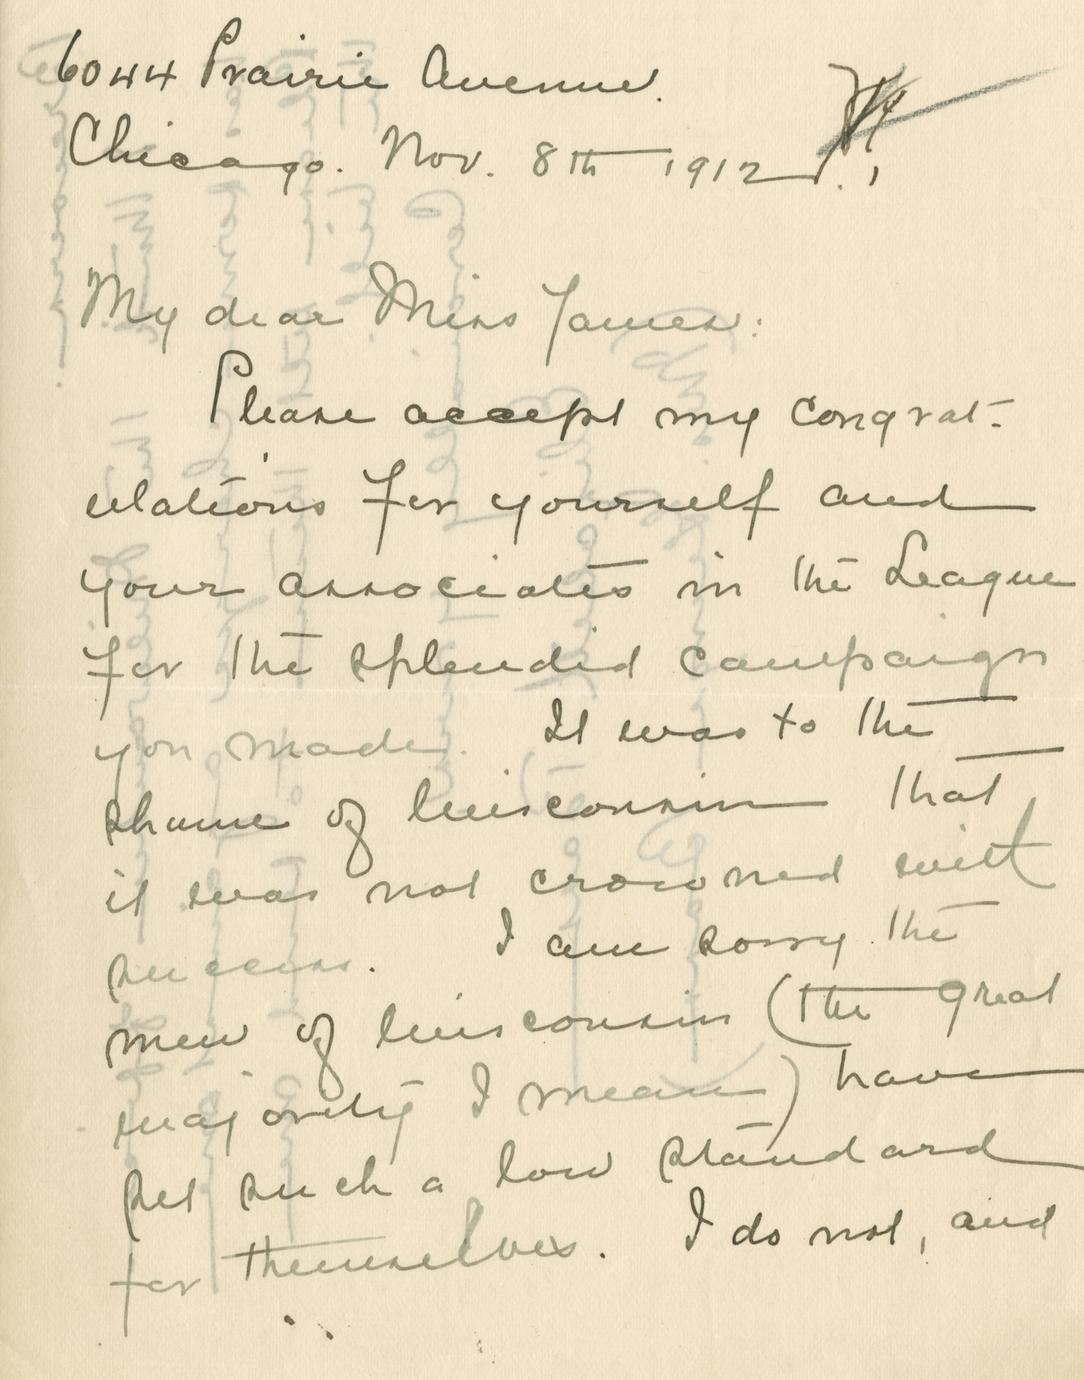 6044 Prairie Avenue.
Chicago. Nov. 8th 1912.
My dear Miss James:
Please accept my congrat-
ulations for yourself and
your associates in the League
for the splendid campaign
you made. It was to the
shame of Wisconsin that
it was not crowned with
success. I am sorry the
men of Wisconsin (the great
majority I mean) have
set such a low standard
for themselves. I do not, and